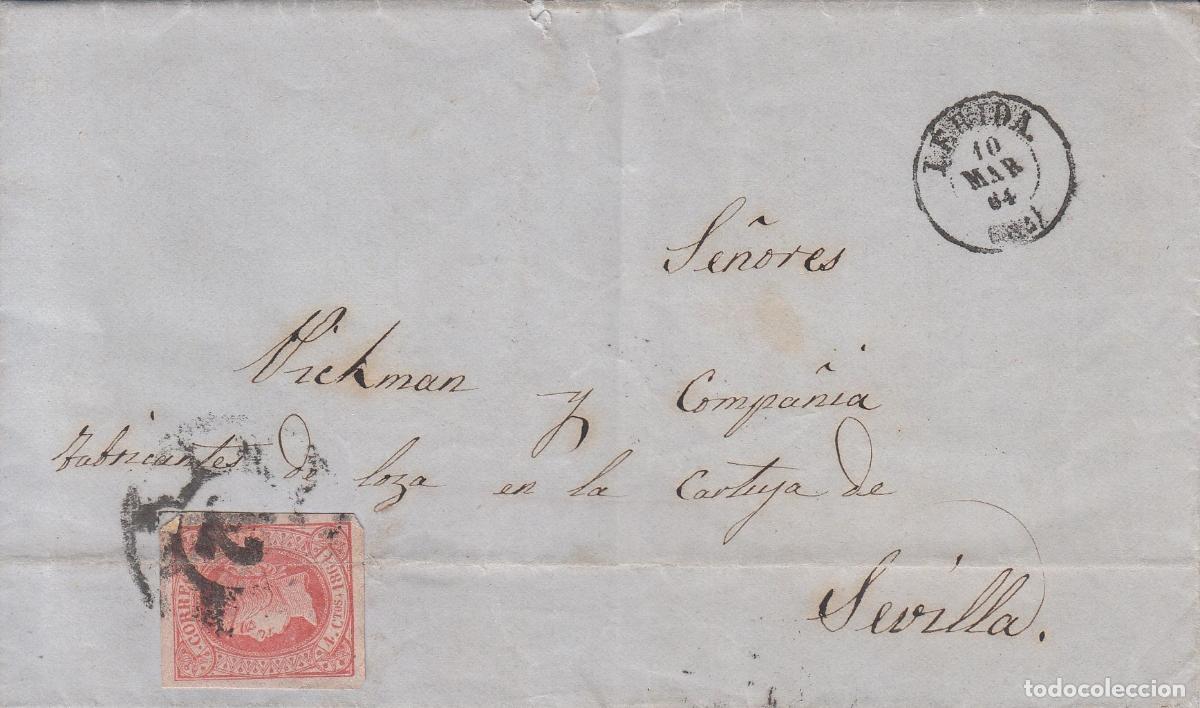 LERIDA.
10
MAR
64
Señores
Vickman y Compañia
fabricantes de loza en la Cartuja de
Sevilla.
2
CORREOS
4 CTOS
1864
todocoleccion